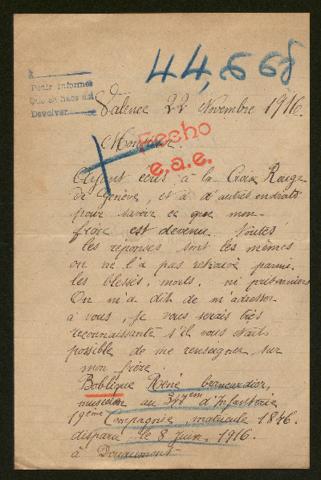 A
Pedir informes
Que se hace así
Devolver
44,668
Valence 22 Novembre 1916.
Monsieur.
Fecho
e.a.e.
Ayant écris à la Croix Rouge
de Genève, et à d'autres endroits
pour savoir ce que mon
frère est devenu, toutes
les réponses sont les mêmes
on ne l'a pas retrouvé parmi
les blessés, morts, ni prisonniers
On m'a dit de m'adresser
à vous, je vous serais très
reconnaissante s'il vous était
possible de me renseigner sur
mon frère
Boblique René brancardier,
musicien au 347ème d'Infanterie
19ème Compagnie, matricule 1876.
disparu le 8 Juin 1916.
à Douaumont.